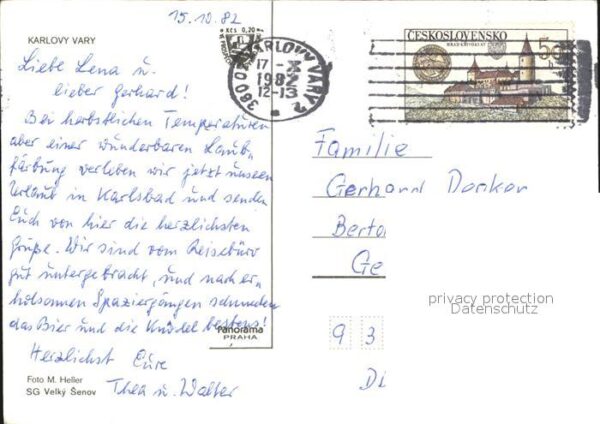 15.10.82
KARLOVY VARY
Liebe Lena u.
lieber Gerhard!
Bei herbstlichen Temperaturen
aber einer wunderbaren Laub-
färbung verleben wir jetzt unseren
Urlaub in Karlsbad und senden
Euch von hier die herzlichsten
Grüße. Wir sind vom Reisebüro
gut untergebracht, und nach er-
holsamen Spaziergängen schmecken
das Bier und die Knödel bestens!
Herzlichst Eure
Thea u. Walter
Foto M. Heller
SG Velký Šenov
Panorama
PRAHA
Kčs 0,20
360 0 KARLOVY VARY 2
17.-X
198
12-13
ČESKOSLOVENSKO
HRAD KŘIVOKLÁT
50
Familie
Gerhard
Berto
Ge
privacy protection
Datenschutz
9 3